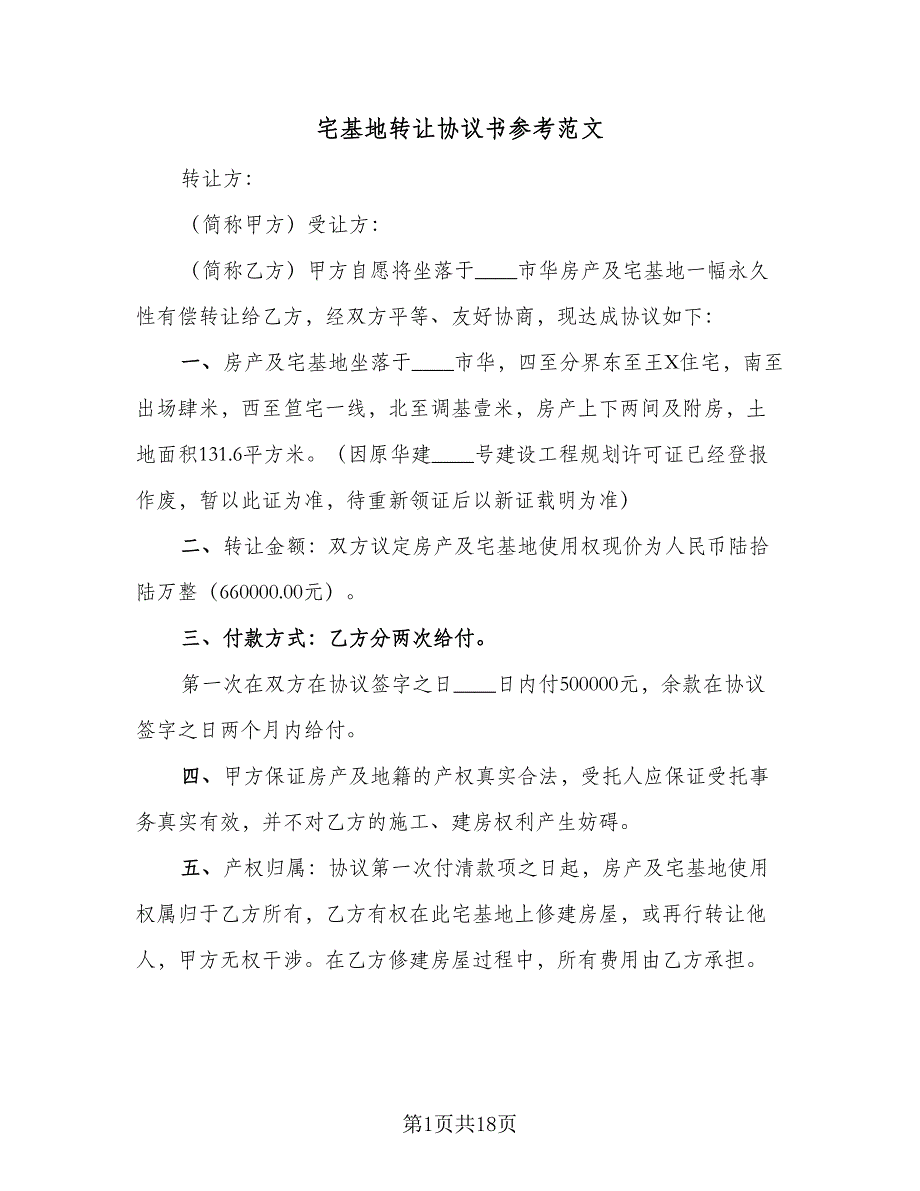 宅基地转让协议书参考范文
转让方：
（简称甲方）受让方：
（简称乙方）甲方自愿将坐落于____市华房产及宅基地一幅永久
性有偿转让给乙方，经双方平等、友好协商，现达成协议如下：
一、房产及宅基地坐落于____市华，四至分界东至王X住宅，南至
出场肆米，西至笪宅一线，北至调基壹米，房产上下两间及附房，土
地面积131.6平方米。（因原华建____号建设工程规划许可证已经登报
作废，暂以此证为准，待重新领证后以新证载明为准）
二、转让金额：双方议定房产及宅基地使用权现价为人民币陆拾
陆万整（660000.00元）。
三、付款方式：乙方分两次给付。
第一次在双方在协议签字之日____日内付500000元，余款在协议
签字之日两个月内给付。
四、甲方保证房产及地籍的产权真实合法，受托人应保证受托事
务真实有效，并不对乙方的施工、建房权利产生妨碍。
五、产权归属：协议第一次付清款项之日起，房产及宅基地使用
权属归于乙方所有，乙方有权在此宅基地上修建房屋，或再行转让他
人，甲方无权干涉。在乙方修建房屋过程中，所有费用由乙方承担。
第1页共18页